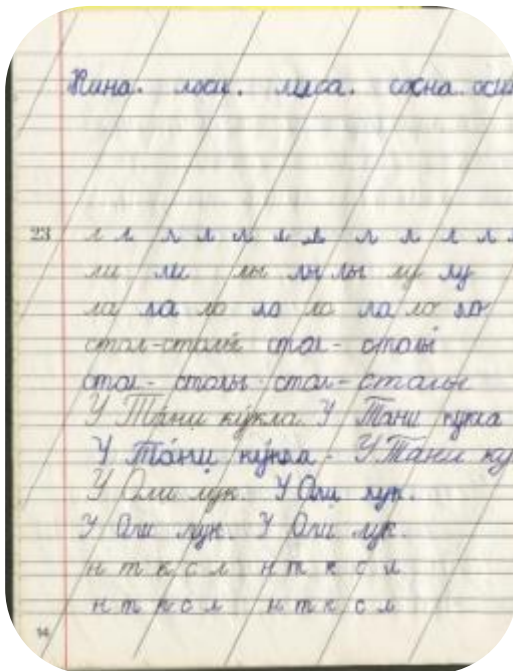 Нина. лоси. лиса. сосна. оси
23 л л л л л л л л л л л л
ли ли лы лы лы лу лу
ла ла ло ло ло ла ло ло
стол-столы стол - столы
стол - столы стол - столы
У Та́ни ку́кла. У Тани кукла
У Та́ни ку́кла. У Тани ку
У Оли лук. У Оли лук.
У Оли лук. У Оли лук.
н т к с л н т к с л
н т к с л н т к с л